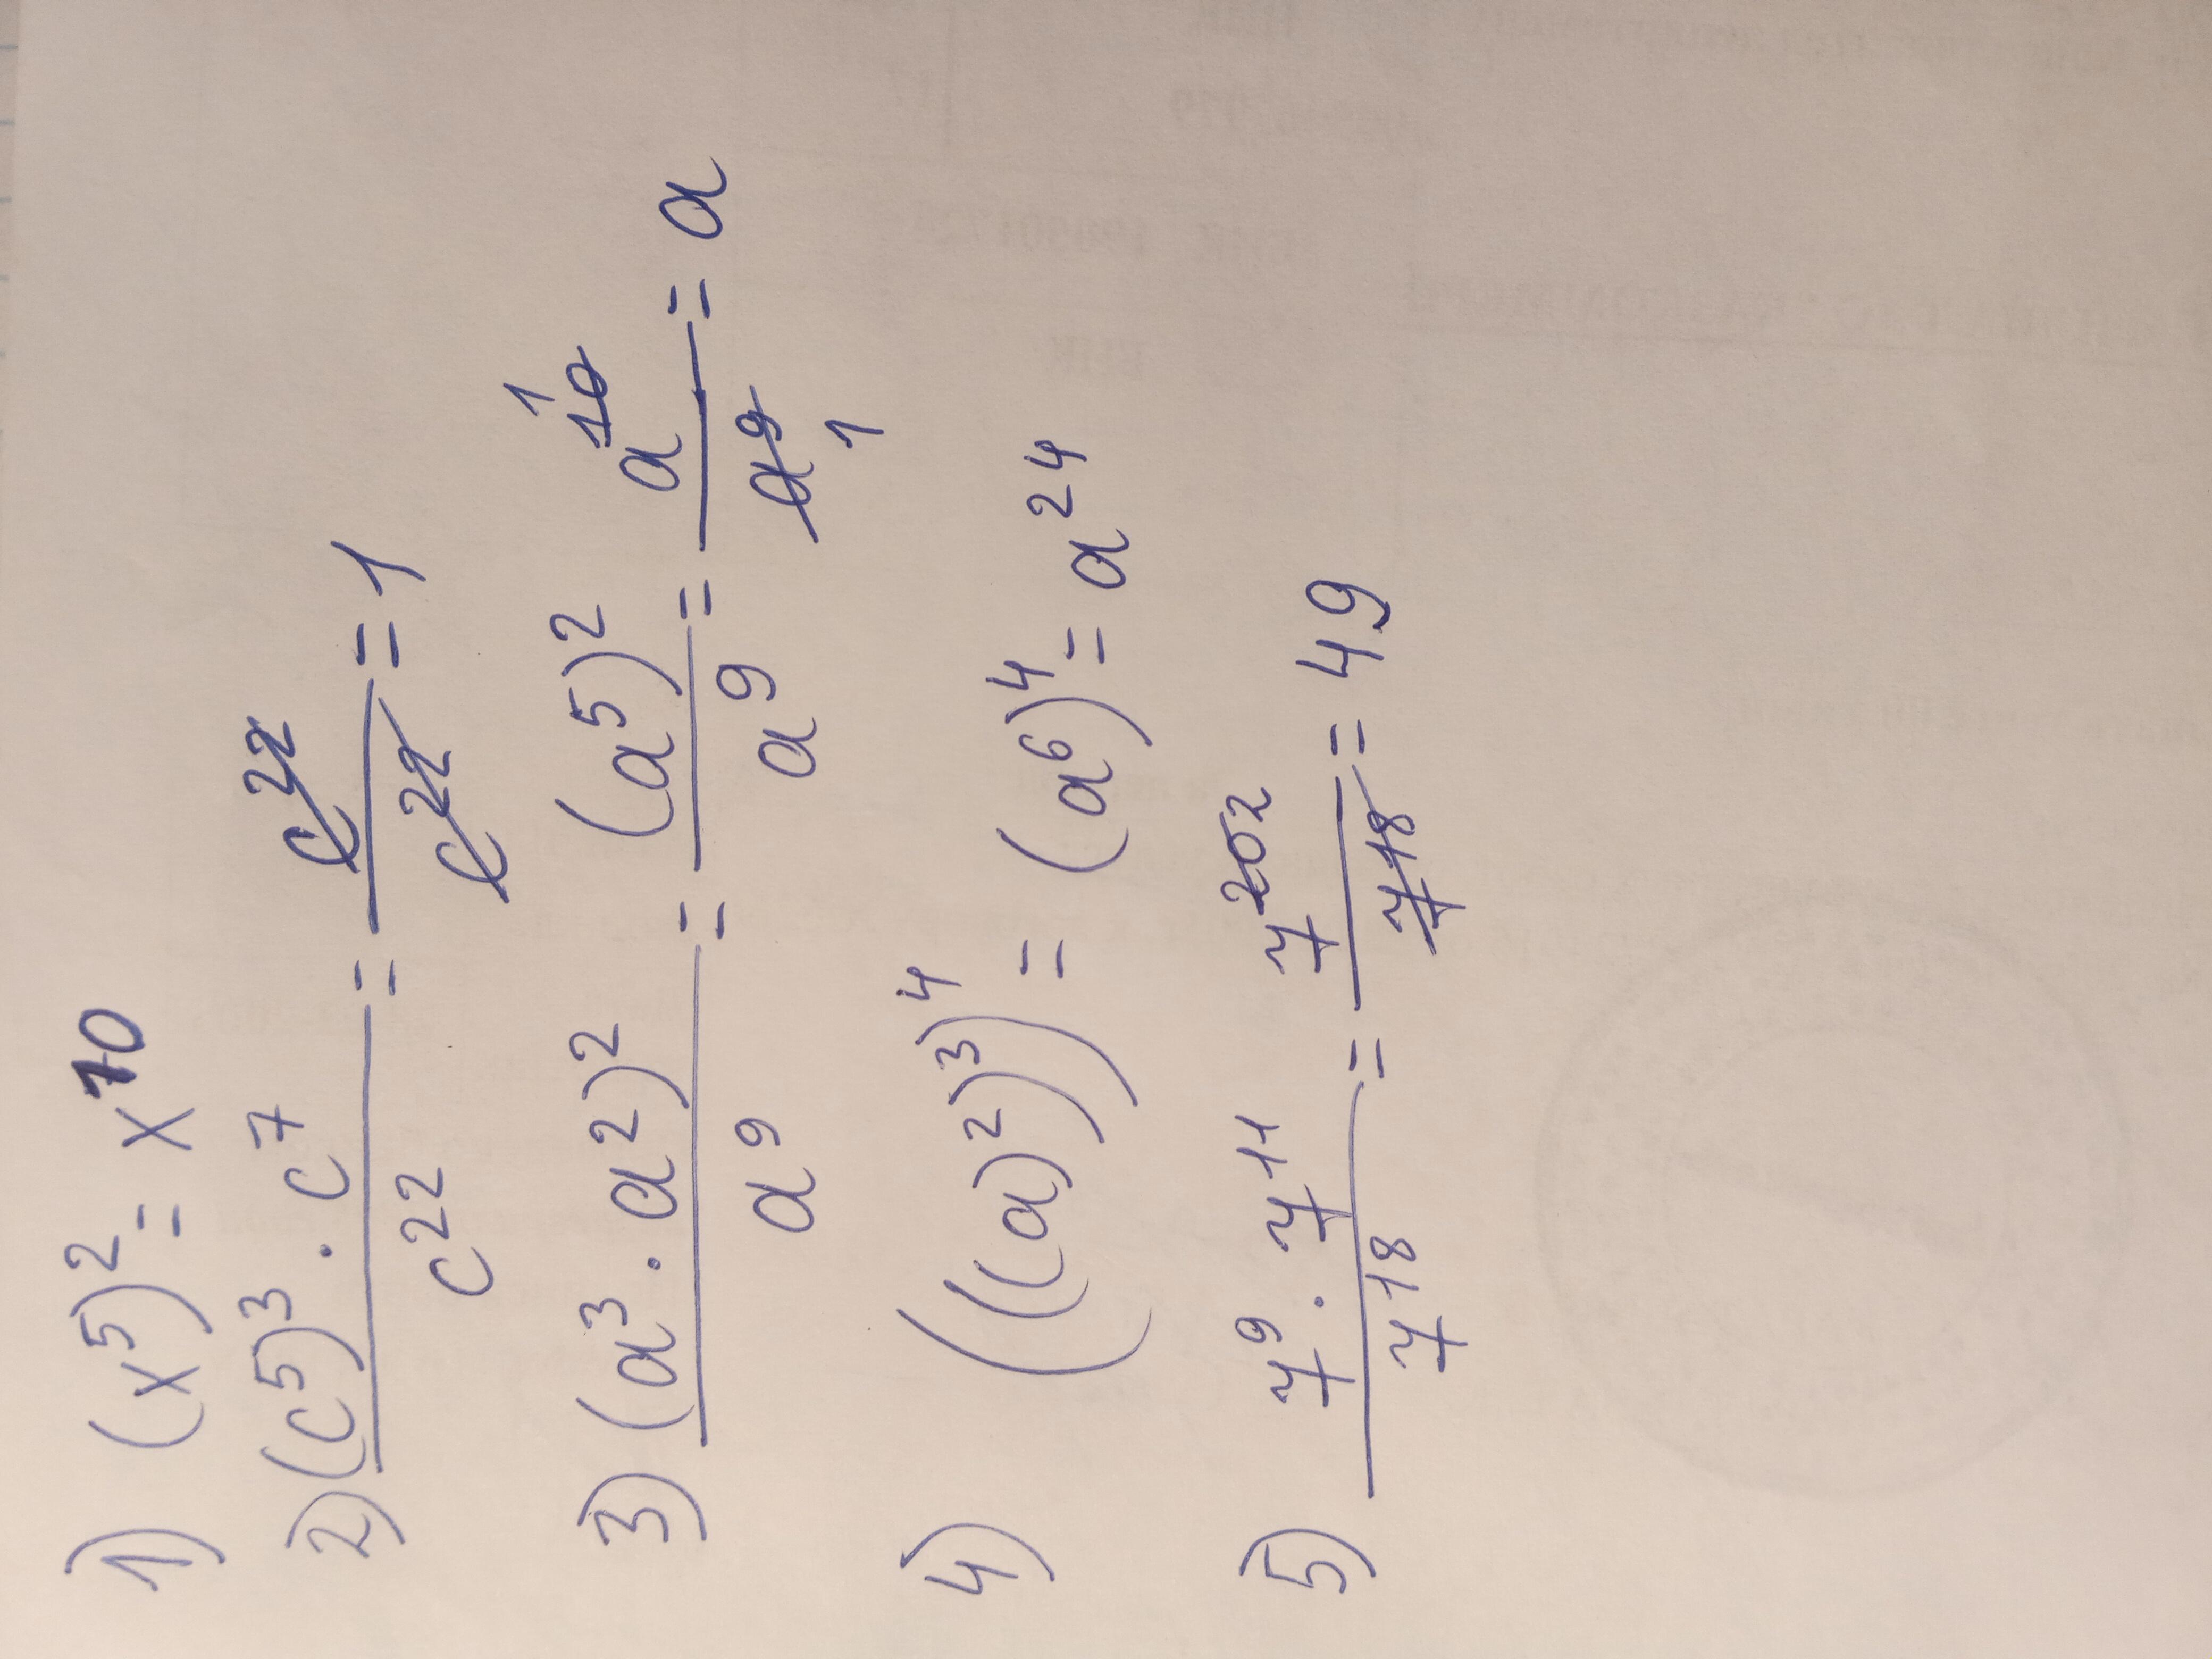 1) (x⁵)² = x¹⁰
2) (c⁵)³ · c⁷ / c²² = c²² / c²² = 1
3) (a³ · a²)² / a⁹ = (a⁵)² / a⁹ = a¹⁰ ¹ / a⁹ 1 = a
4) (((a)²)³)⁴ = (a⁶)⁴ = a²⁴
5) 7⁹ · 7¹¹ / 7¹⁸ = 7²⁰ ² / 7¹⁸ = 49